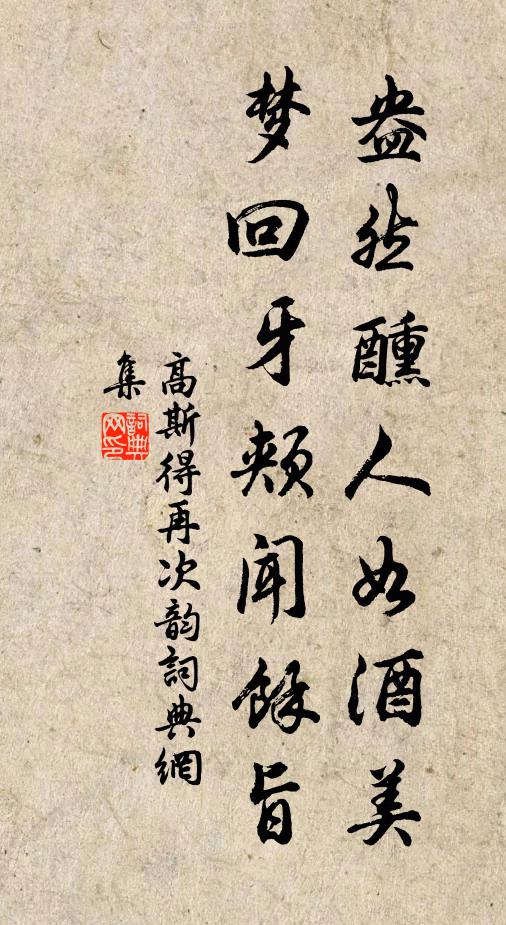 盎然醺人如酒美
梦回牙颊闻馀旨
高斯得再次韵詞典網
集
詞典网印